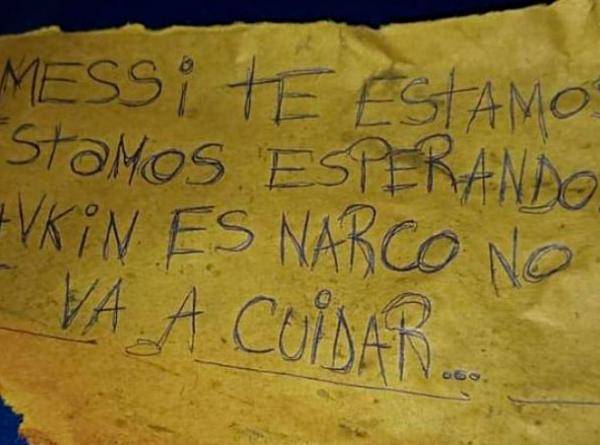 MESSi tE EStAMOS
EStaMOS ESPERANDO.
VKiN ES NARCO NO
VA A CUiDAR...